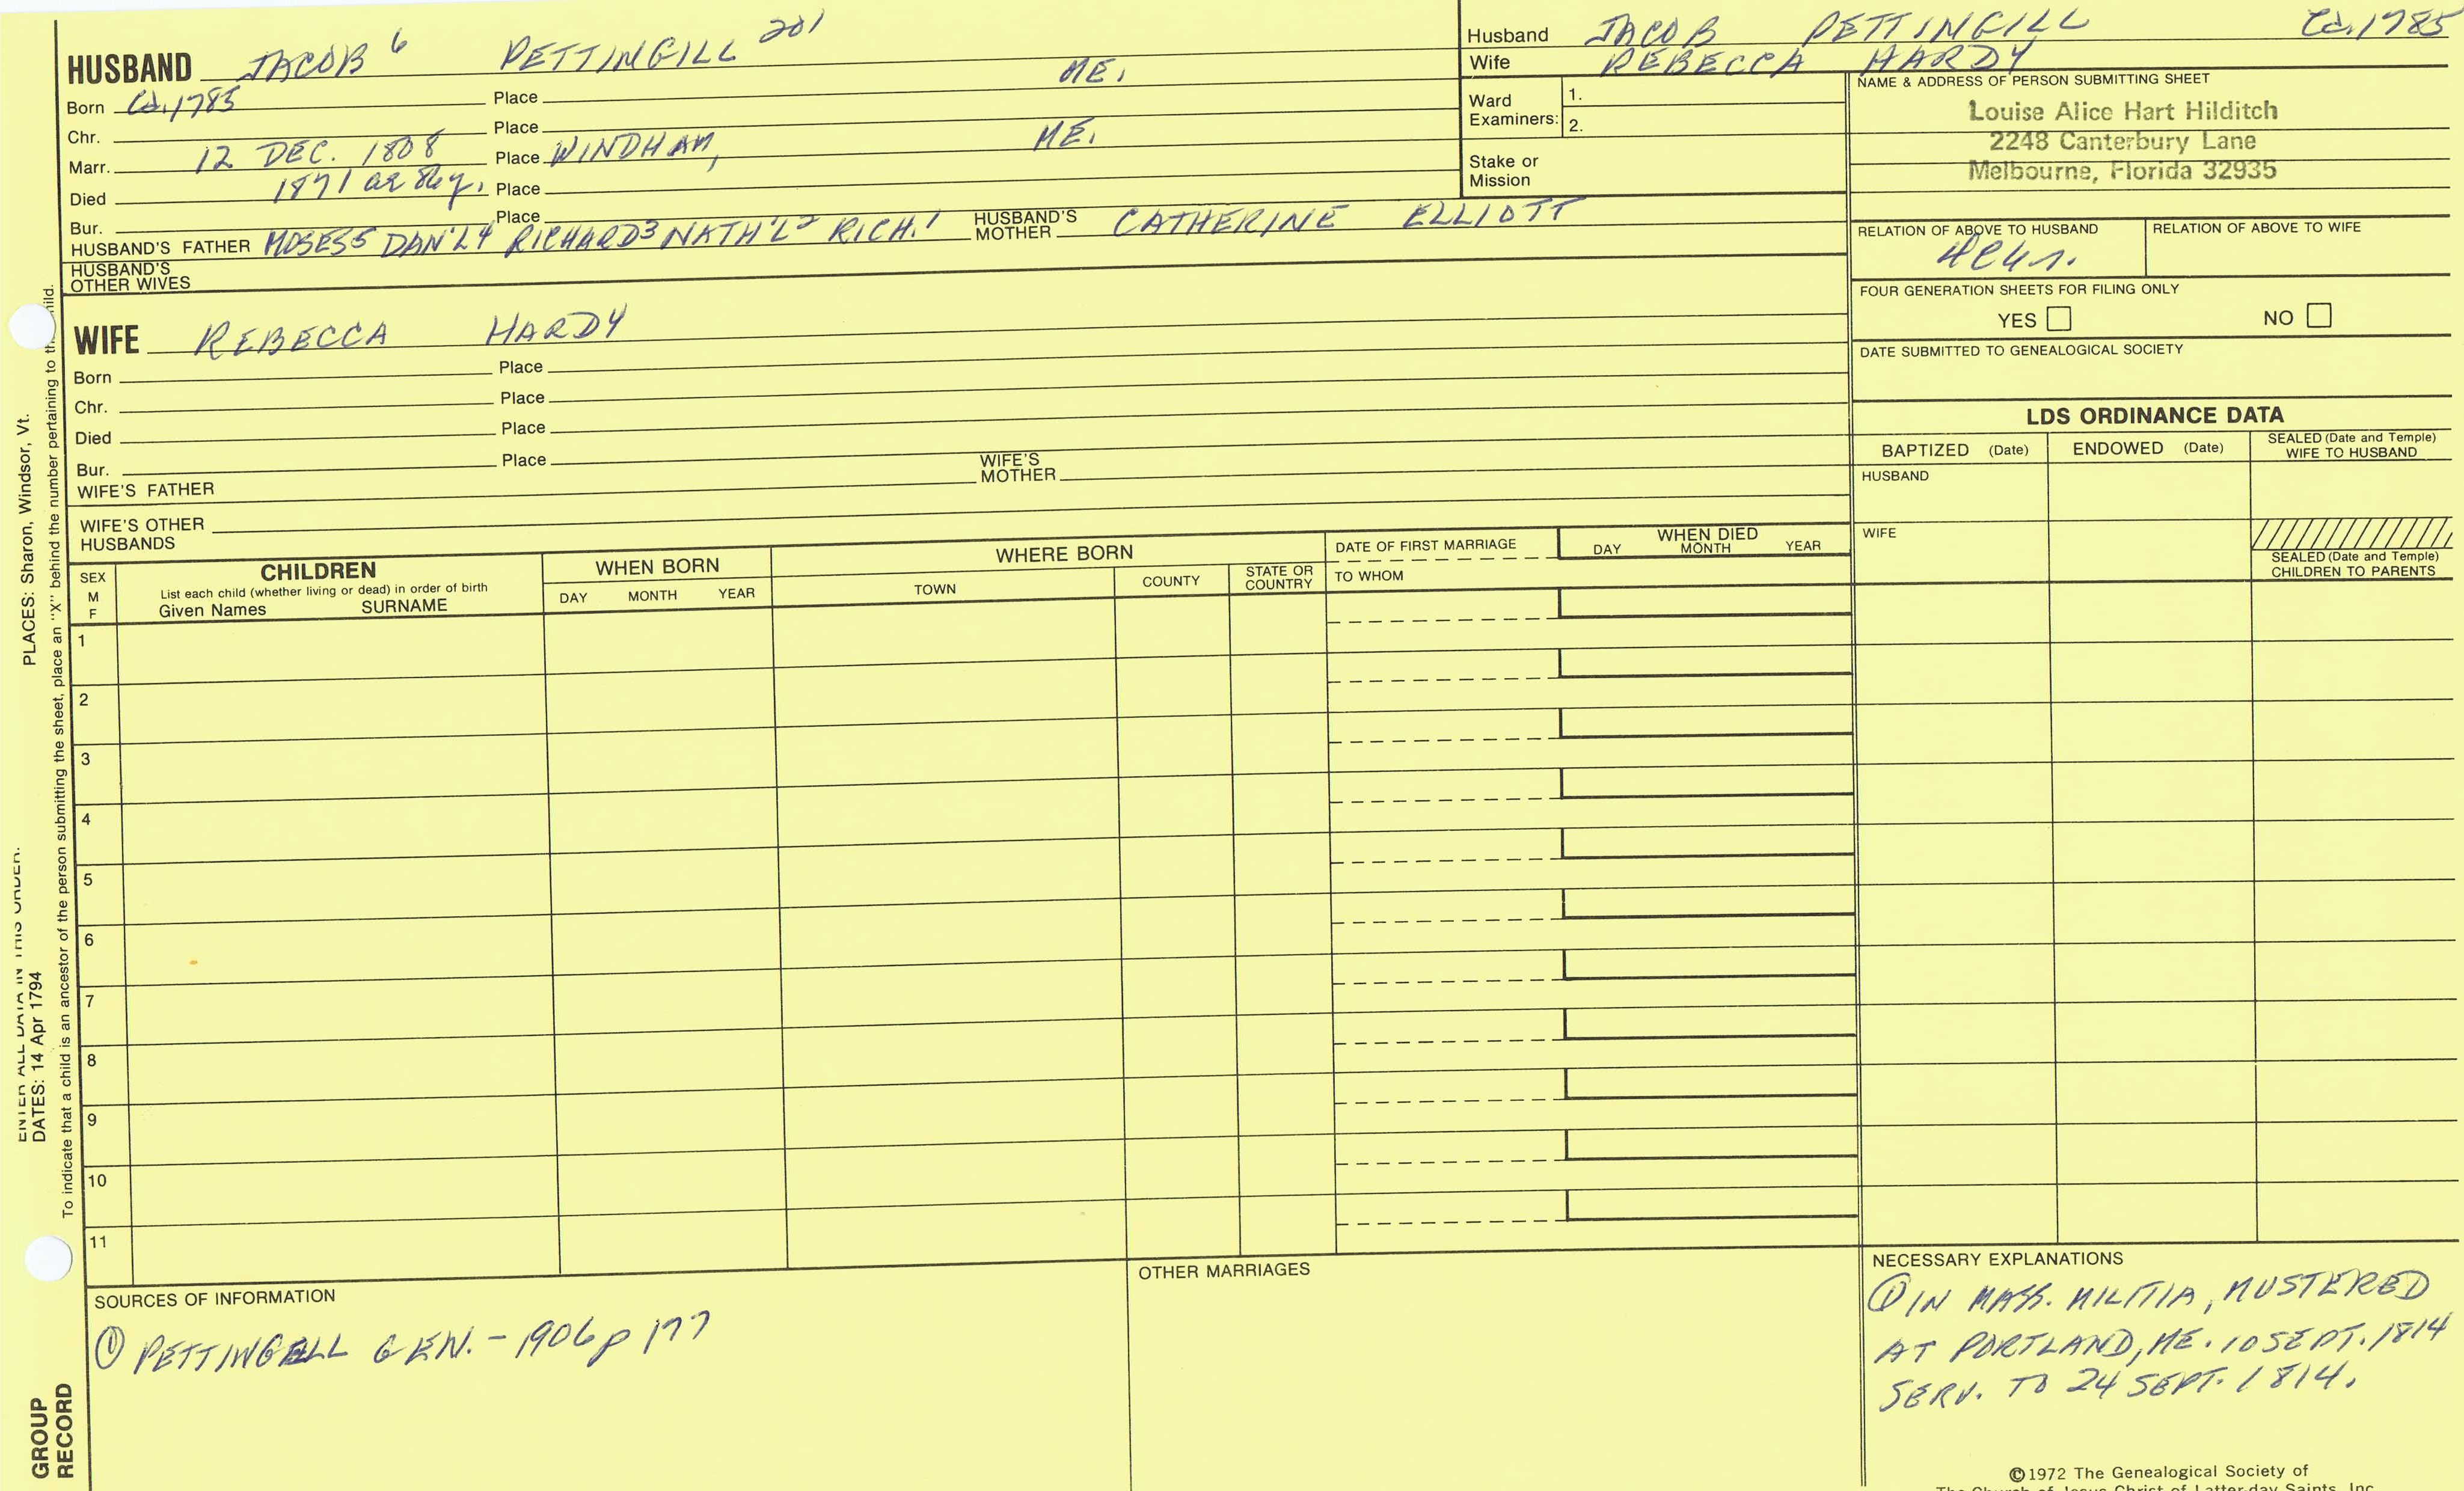 HUSBAND JACOB 6 PETTINGILL 201
Born Ca. 1785 Place ME.
Chr. Place
Marr. 12 DEC. 1808 Place WINDHAM, ME.
Died 1871 ae 86 y. Place
Bur. Place
HUSBAND'S FATHER MOSES5 DAN'L4 RICHARD3 NATH'L2 RICH.1 HUSBAND'S MOTHER CATHERINE ELLIOTT
HUSBAND'S OTHER WIVES
WIFE REBECCA HARDY
Born Place
Chr. Place
Died Place
Bur. Place
WIFE'S FATHER WIFE'S MOTHER
WIFE'S OTHER HUSBANDS
Husband JACOB PETTINGILL Ca. 1785
Wife REBECCA HARDY
Ward Examiners: 1.
2.
Stake or Mission
NAME & ADDRESS OF PERSON SUBMITTING SHEET
Louise Alice Hart Hilditch
2248 Canterbury Lane
Melbourne, Florida 32935
RELATION OF ABOVE TO HUSBAND RELATION OF ABOVE TO WIFE
FOUR GENERATION SHEETS FOR FILING ONLY
YES NO
DATE SUBMITTED TO GENEALOGICAL SOCIETY
LDS ORDINANCE DATA
BAPTIZED (Date) ENDOWED (Date) SEALED (Date and Temple) WIFE TO HUSBAND
HUSBAND
WIFE
SEALED (Date and Temple)
CHILDREN TO PARENTS
SEX M F
CHILDREN
List each child (whether living or dead) in order of birth
Given Names SURNAME
WHEN BORN
DAY MONTH YEAR
WHERE BORN
TOWN COUNTY STATE OR COUNTRY
DATE OF FIRST MARRIAGE
TO WHOM
WHEN DIED
DAY MONTH YEAR
1
2
3
4
5
6
7
8
9
10
11
SOURCES OF INFORMATION
① PETTINGELL GEN. - 1906 p 177
OTHER MARRIAGES
NECESSARY EXPLANATIONS
① IN MASS. MILITIA, MUSTERED
AT PORTLAND, ME. 10 SEPT. 1814
SERV. TO 24 SEPT. 1814.
©1972 The Genealogical Society of
The Church of Jesus Christ of Latter-day Saints, Inc.
ENTER ALL DATA IN THIS ORDER:
DATES: 14 Apr 1794 PLACES: Sharon, Windsor, Vt.
To indicate that a child is an ancestor of the person submitting the sheet, place an "X" behind the number pertaining to
GROUP
RECORD